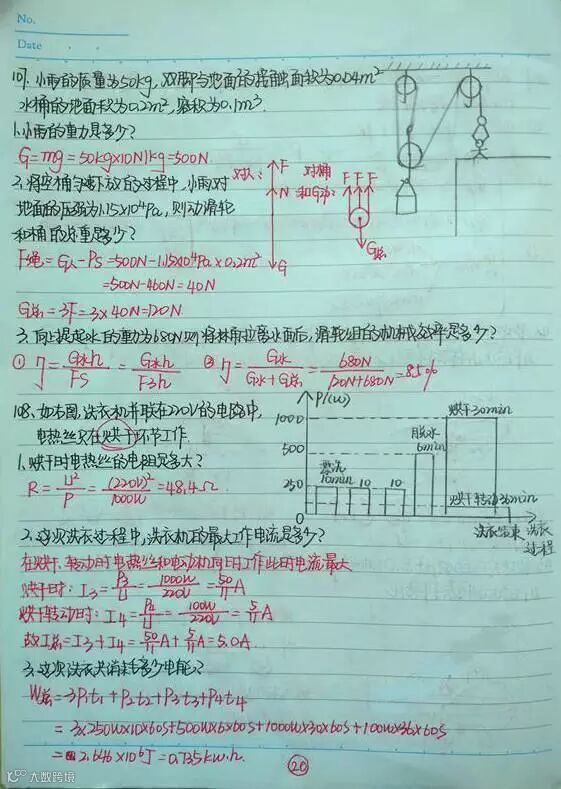 No.
Date
107. 小雨的质量为50kg,双脚与地面的接触面积为0.04m²
水桶的地面积为0.2m²,容积为0.1m³.
1.小雨的重力是多少?
G=mg=50kg×10N/kg=500N
2.将空桶匀速下放的过程中,小雨对
地面的压强为1.15×10⁴Pa,则动滑轮
和桶的总重是多少?
对人:
F
N
G
对桶
和G动:
F F F
G总
F绳=G人-PS=500N-1.15×10⁴Pa×0.2m²
=500N-460N=40N
G总=3F=3×40N=120N
3.向上提起水的重力为680N时,将桶拉离水面后,滑轮组的机械效率是多少?
① η=G水h/FS=G水h/F3h ② η=G水/G水+G总=680N/120N+680N=85%
108.如右图,洗衣机并联在220V的电路中,
电热丝只在烘干环节工作.
1.烘干时电热丝的电阻是多大?
R=U²/P=(220V)²/1000W=48.4Ω
P/(w)
1000
500
250
10min
10
10
脱水
6min
烘干30min
烘干转动36min
洗衣结束
洗衣
过程
2.这次洗衣过程中,洗衣机的最大工作电流是多少?
在烘干、转动时电热丝和电动机同时工作此时电流最大
烘干时:I₃=P₃/U=1000W/220V=50/11A
烘干转动时:I₄=P₄/U=100W/220V=5/11A
故I总=I₃+I₄=50/11A+5/11A=5.0A
3.这次洗衣共消耗多少电能?
W总=3P₁t₁+P₂t₂+P₃t₃+P₄t₄
=3×250W×10×60s+500W×6×60s+1000W×30×60s+100W×36×60s
=2.646×10⁶J=0.735kw.h.
20
10100 大数跨境